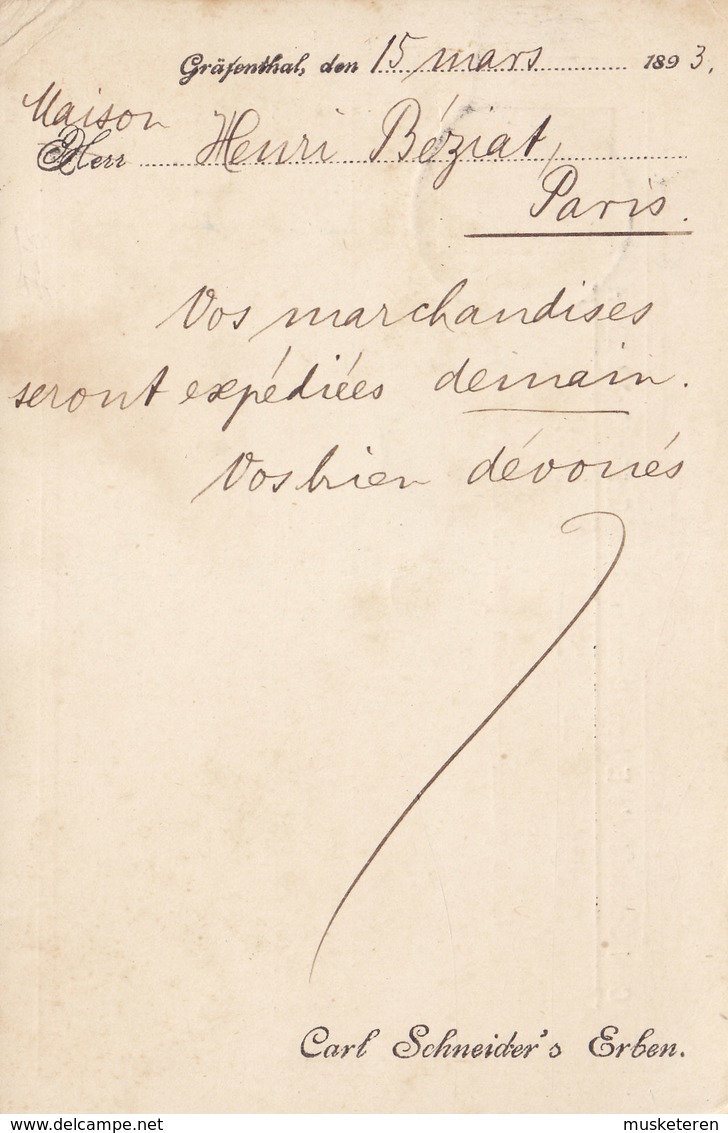 Gräfenthal, den 15 mars 1893.
Maison
Herr Henri Béziat,
Paris.
Vos marchandises
seront expédiées demain.
Vos bien dévoués
Carl Schneider's Erben.
musketeren